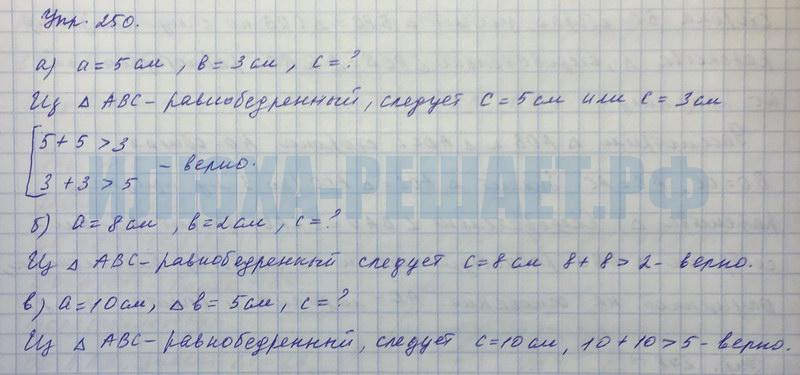 Упр. 250.
а) a = 5 см, в = 3 см, c = ?
Из △ ABC - равнобедренный, следует c = 5 см или c = 3 см
5 + 5 > 3
3 + 3 > 5 - верно.
ИЛЮХА-РЕШАЕТ.РФ
б) a = 8 см, в = 2 см, c = ?
Из △ ABC - равнобедренный следует c = 8 см 8 + 8 > 2 - верно.
в) a = 10 см, △ в = 5 см, c = ?
Из △ ABC - равнобедренный, следует c = 10 см, 10 + 10 > 5 - верно.